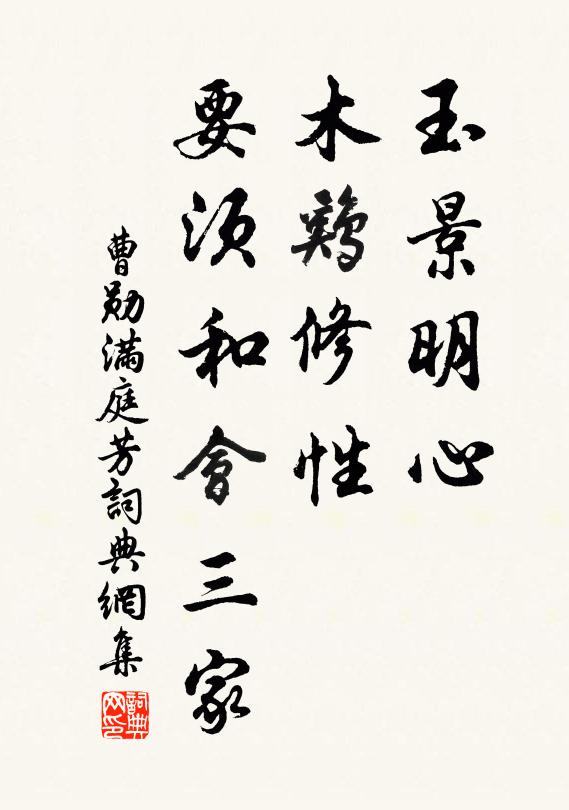 玉景明心
木鷄修性
要須和會三家
曹勛滿庭芳詞典網集
詞典網印